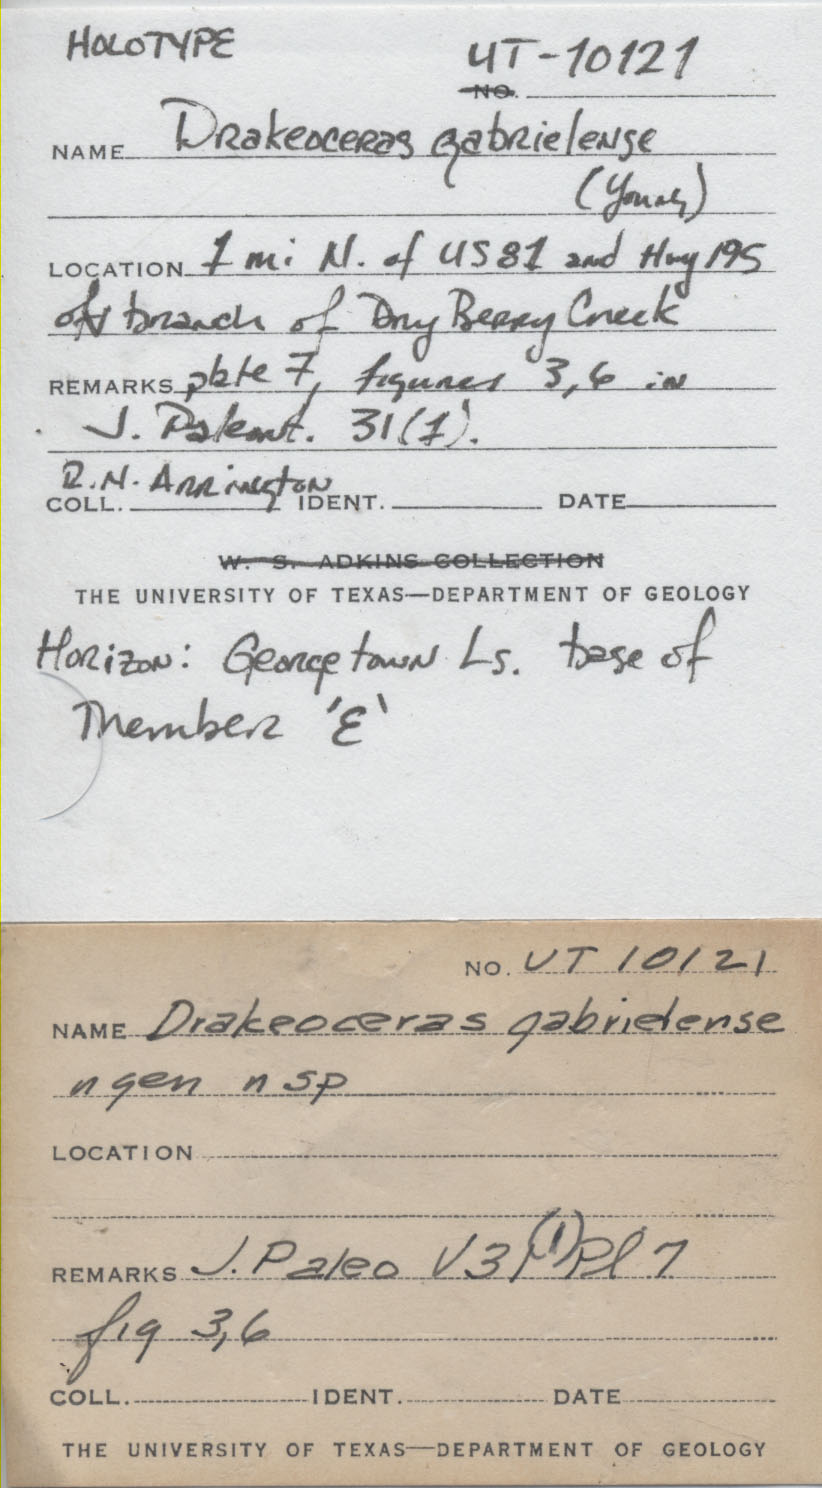 HOLOTYPE
UT-10121
NO.
NAME Drakeoceras gabrielense
(Young)
LOCATION 1 mi N. of US81 and Hwy 195
on branch of Dry Berry Creek
REMARKS plate 7, figures 3,6 in
J. Paleont. 31(1).
R.N. Arrington
COLL. IDENT. DATE
W. S. ADKINS COLLECTION
THE UNIVERSITY OF TEXAS—DEPARTMENT OF GEOLOGY
Horizon: Georgetown Ls. base of
Member 'E'
NO. UT 10121
NAME Drakeoceras gabrielense
n gen n sp
LOCATION
REMARKS J. Paleo V31(1) Pl 7
fig 3,6
COLL. IDENT. DATE
THE UNIVERSITY OF TEXAS—DEPARTMENT OF GEOLOGY